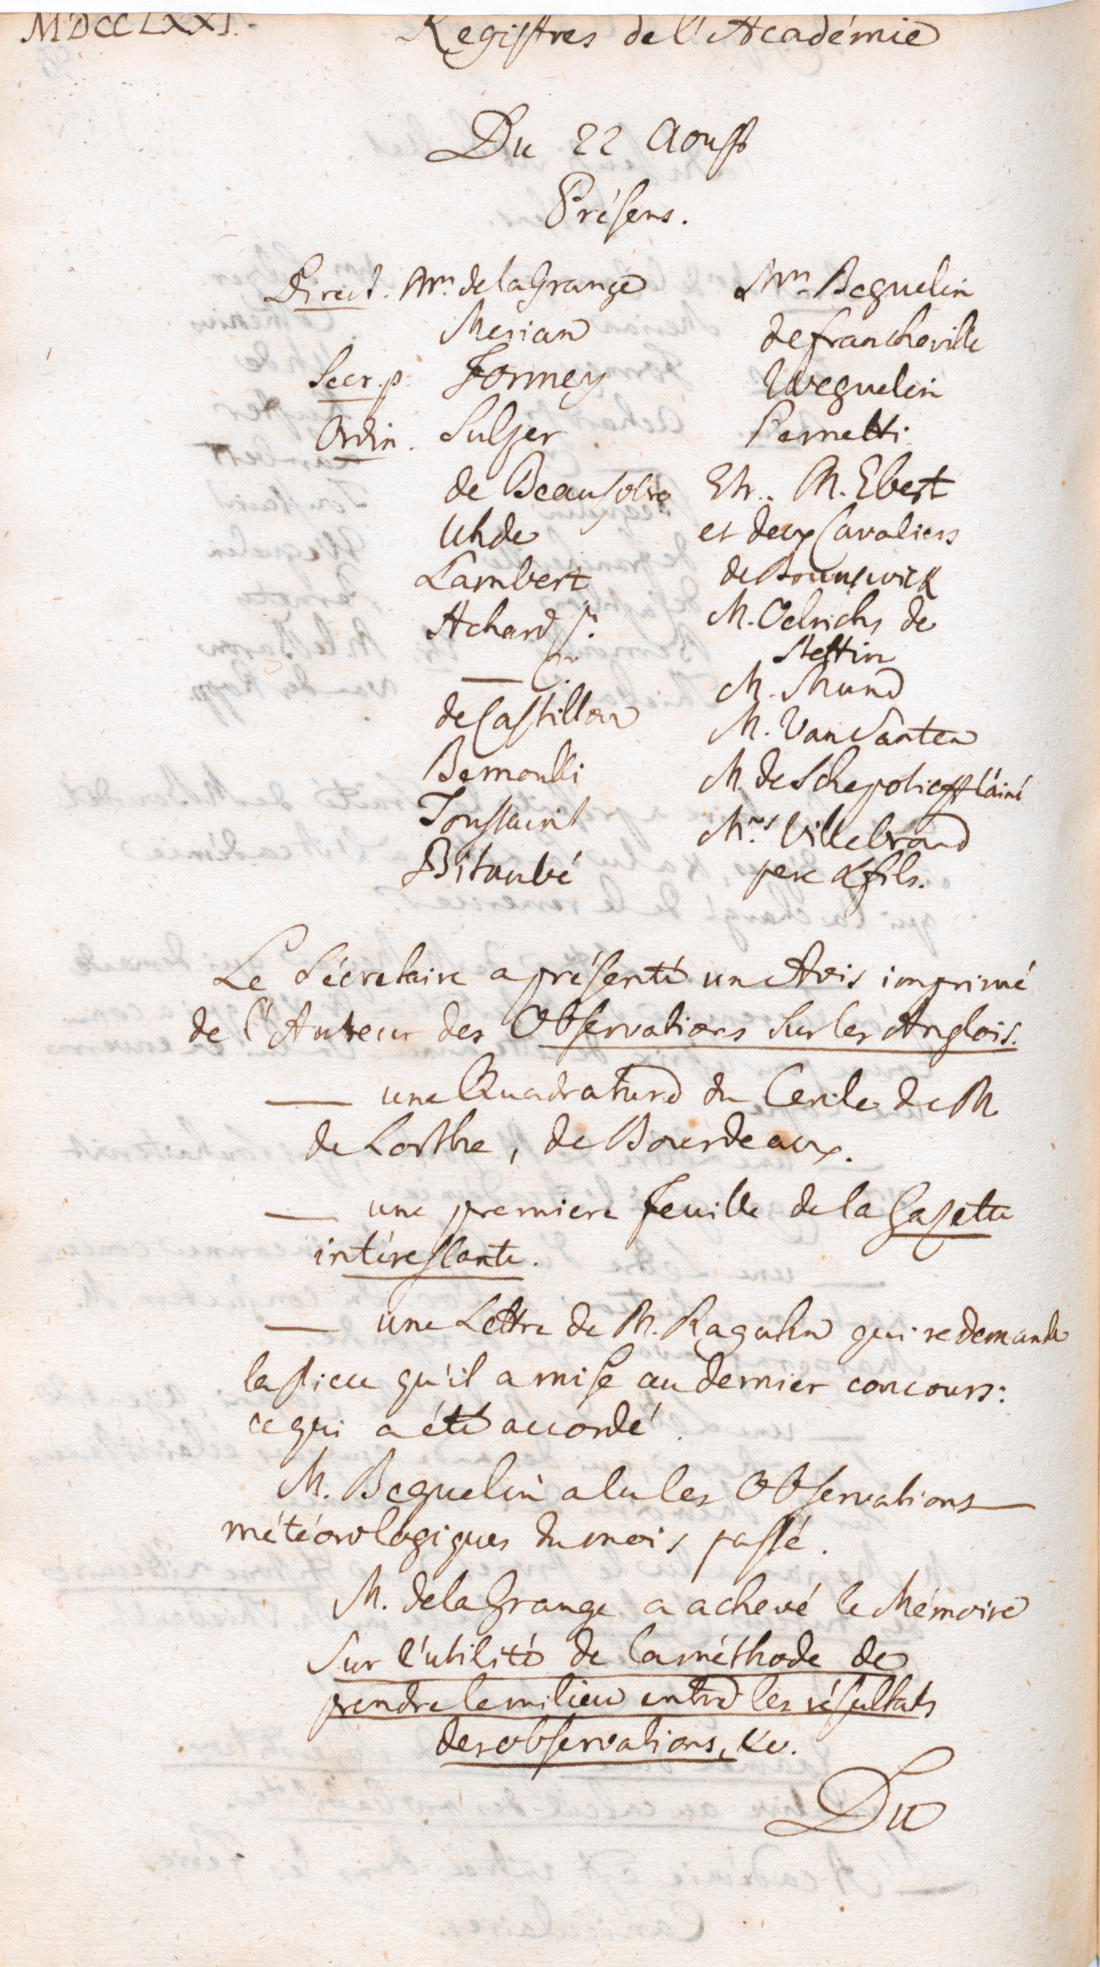 MDCCLXXI.
Registres de l'Académie
Du 22 Aoust
Présens.
Direct. Mrs. de la Grange
Merian
Secr. p. Formey
Ordin. Sulzer
de Beausobre
Uhde
Lambert
Achard jr.
de Castillon
Bernoulli
Toussaint
Bitaubé
Mrs. Beguelin
de Francheville
Weguelin
Pernetti
Etr. M. Ebert
et deux Cavaliers
de Brunswick
M. Oelrichs de
Stettin
M. Mund
M. Van Santen
M. de l'ainé
Mrs. Villebrand
pere & fils.
Le Sécretaire a présenté un Avis imprimé
de l'Auteur des Observations sur les Anglois.
— une Quadrature du Cercle de M
de Lorthe, de Bourdeaux.
— une premiere feuille de la Gazette
intéressante.
— une Lettre de M. Raguhn qui redemande
la piece qu'il a mise au dernier concours:
ce qui a été accordé.
M. Beguelin a lu les Observations
météorologiques du mois passé.
M. de la Grange a achevé le Mémoire
sur l'utilité de la méthode de
prendre le milieu entre les résultats
des observations, &c.
Du